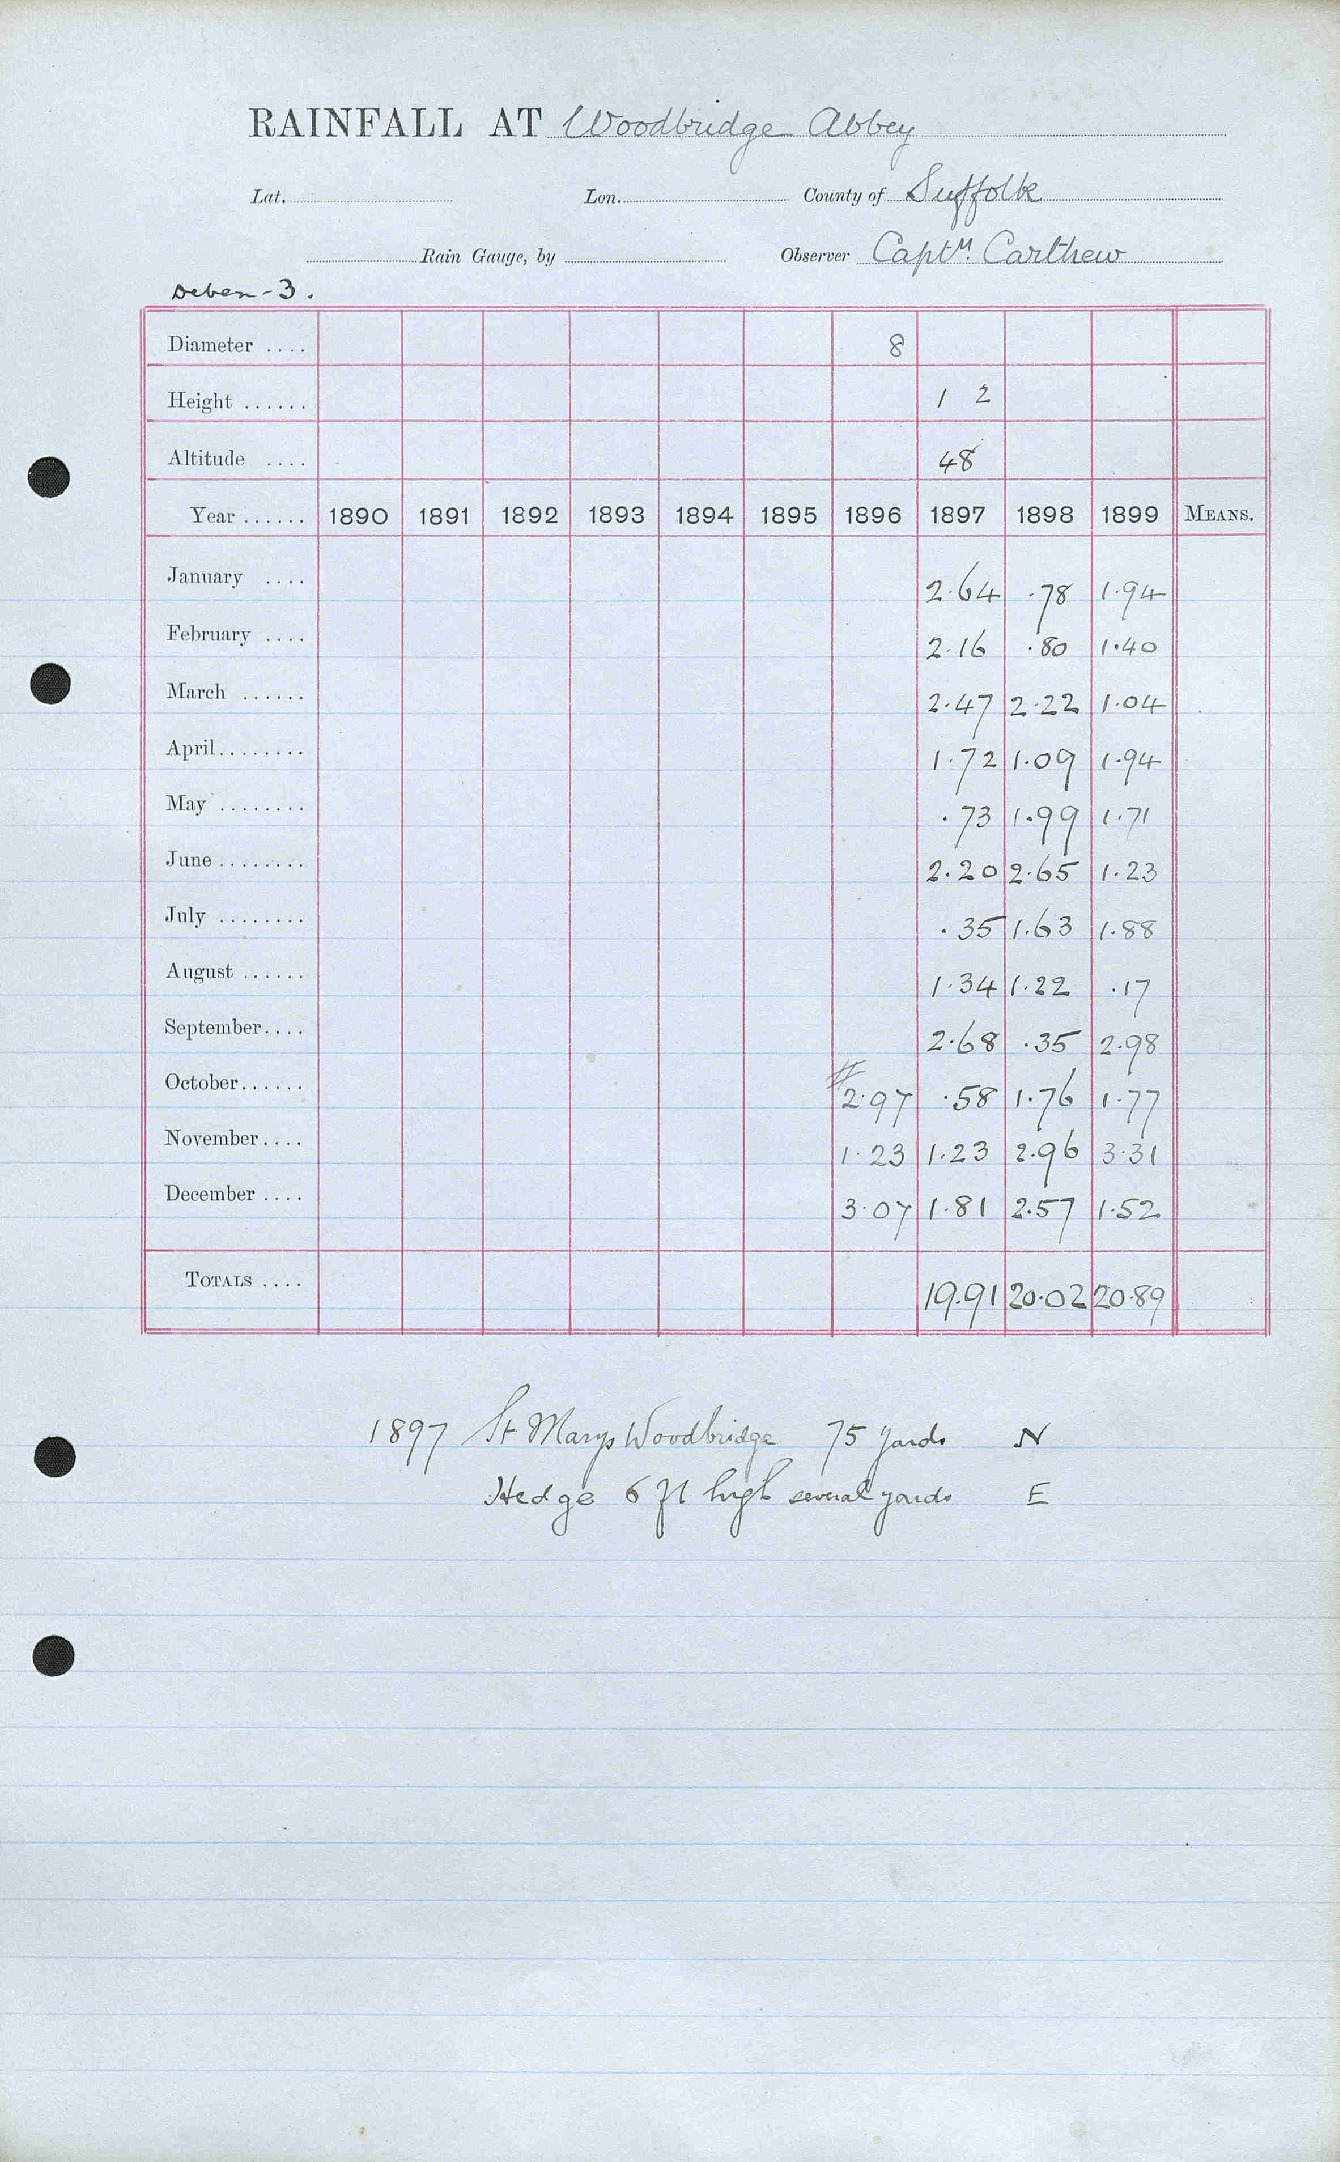 RAINFALL AT Woodbridge Abbey
Lat. Lon. County of Suffolk
Rain Gauge, by Observer Capt.n Carthew
Deben - 3.
Diameter .... 8
Height ...... 1 2
Altitude .... 48
Year ...... 1890 1891 1892 1893 1894 1895 1896 1897 1898 1899 MEANS.
January .... 2.64 .78 1.94
February .... 2.16 .80 1.40
March ...... 2.47 2.22 1.04
April ........ 1.72 1.09 1.94
May ........ .73 1.99 1.71
June ........ 2.20 2.65 1.23
July ........ .35 1.63 1.88
August ...... 1.34 1.22 .17
September .... 2.68 .35 2.98
October ...... # 2.97 .58 1.76 1.77
November .... 1.23 1.23 2.96 3.31
December .... 3.07 1.81 2.57 1.52
TOTALS .... 19.91 20.02 20.89
1897 St Marys Woodbridge 75 yards N
Hedge 6 ft high several yards E